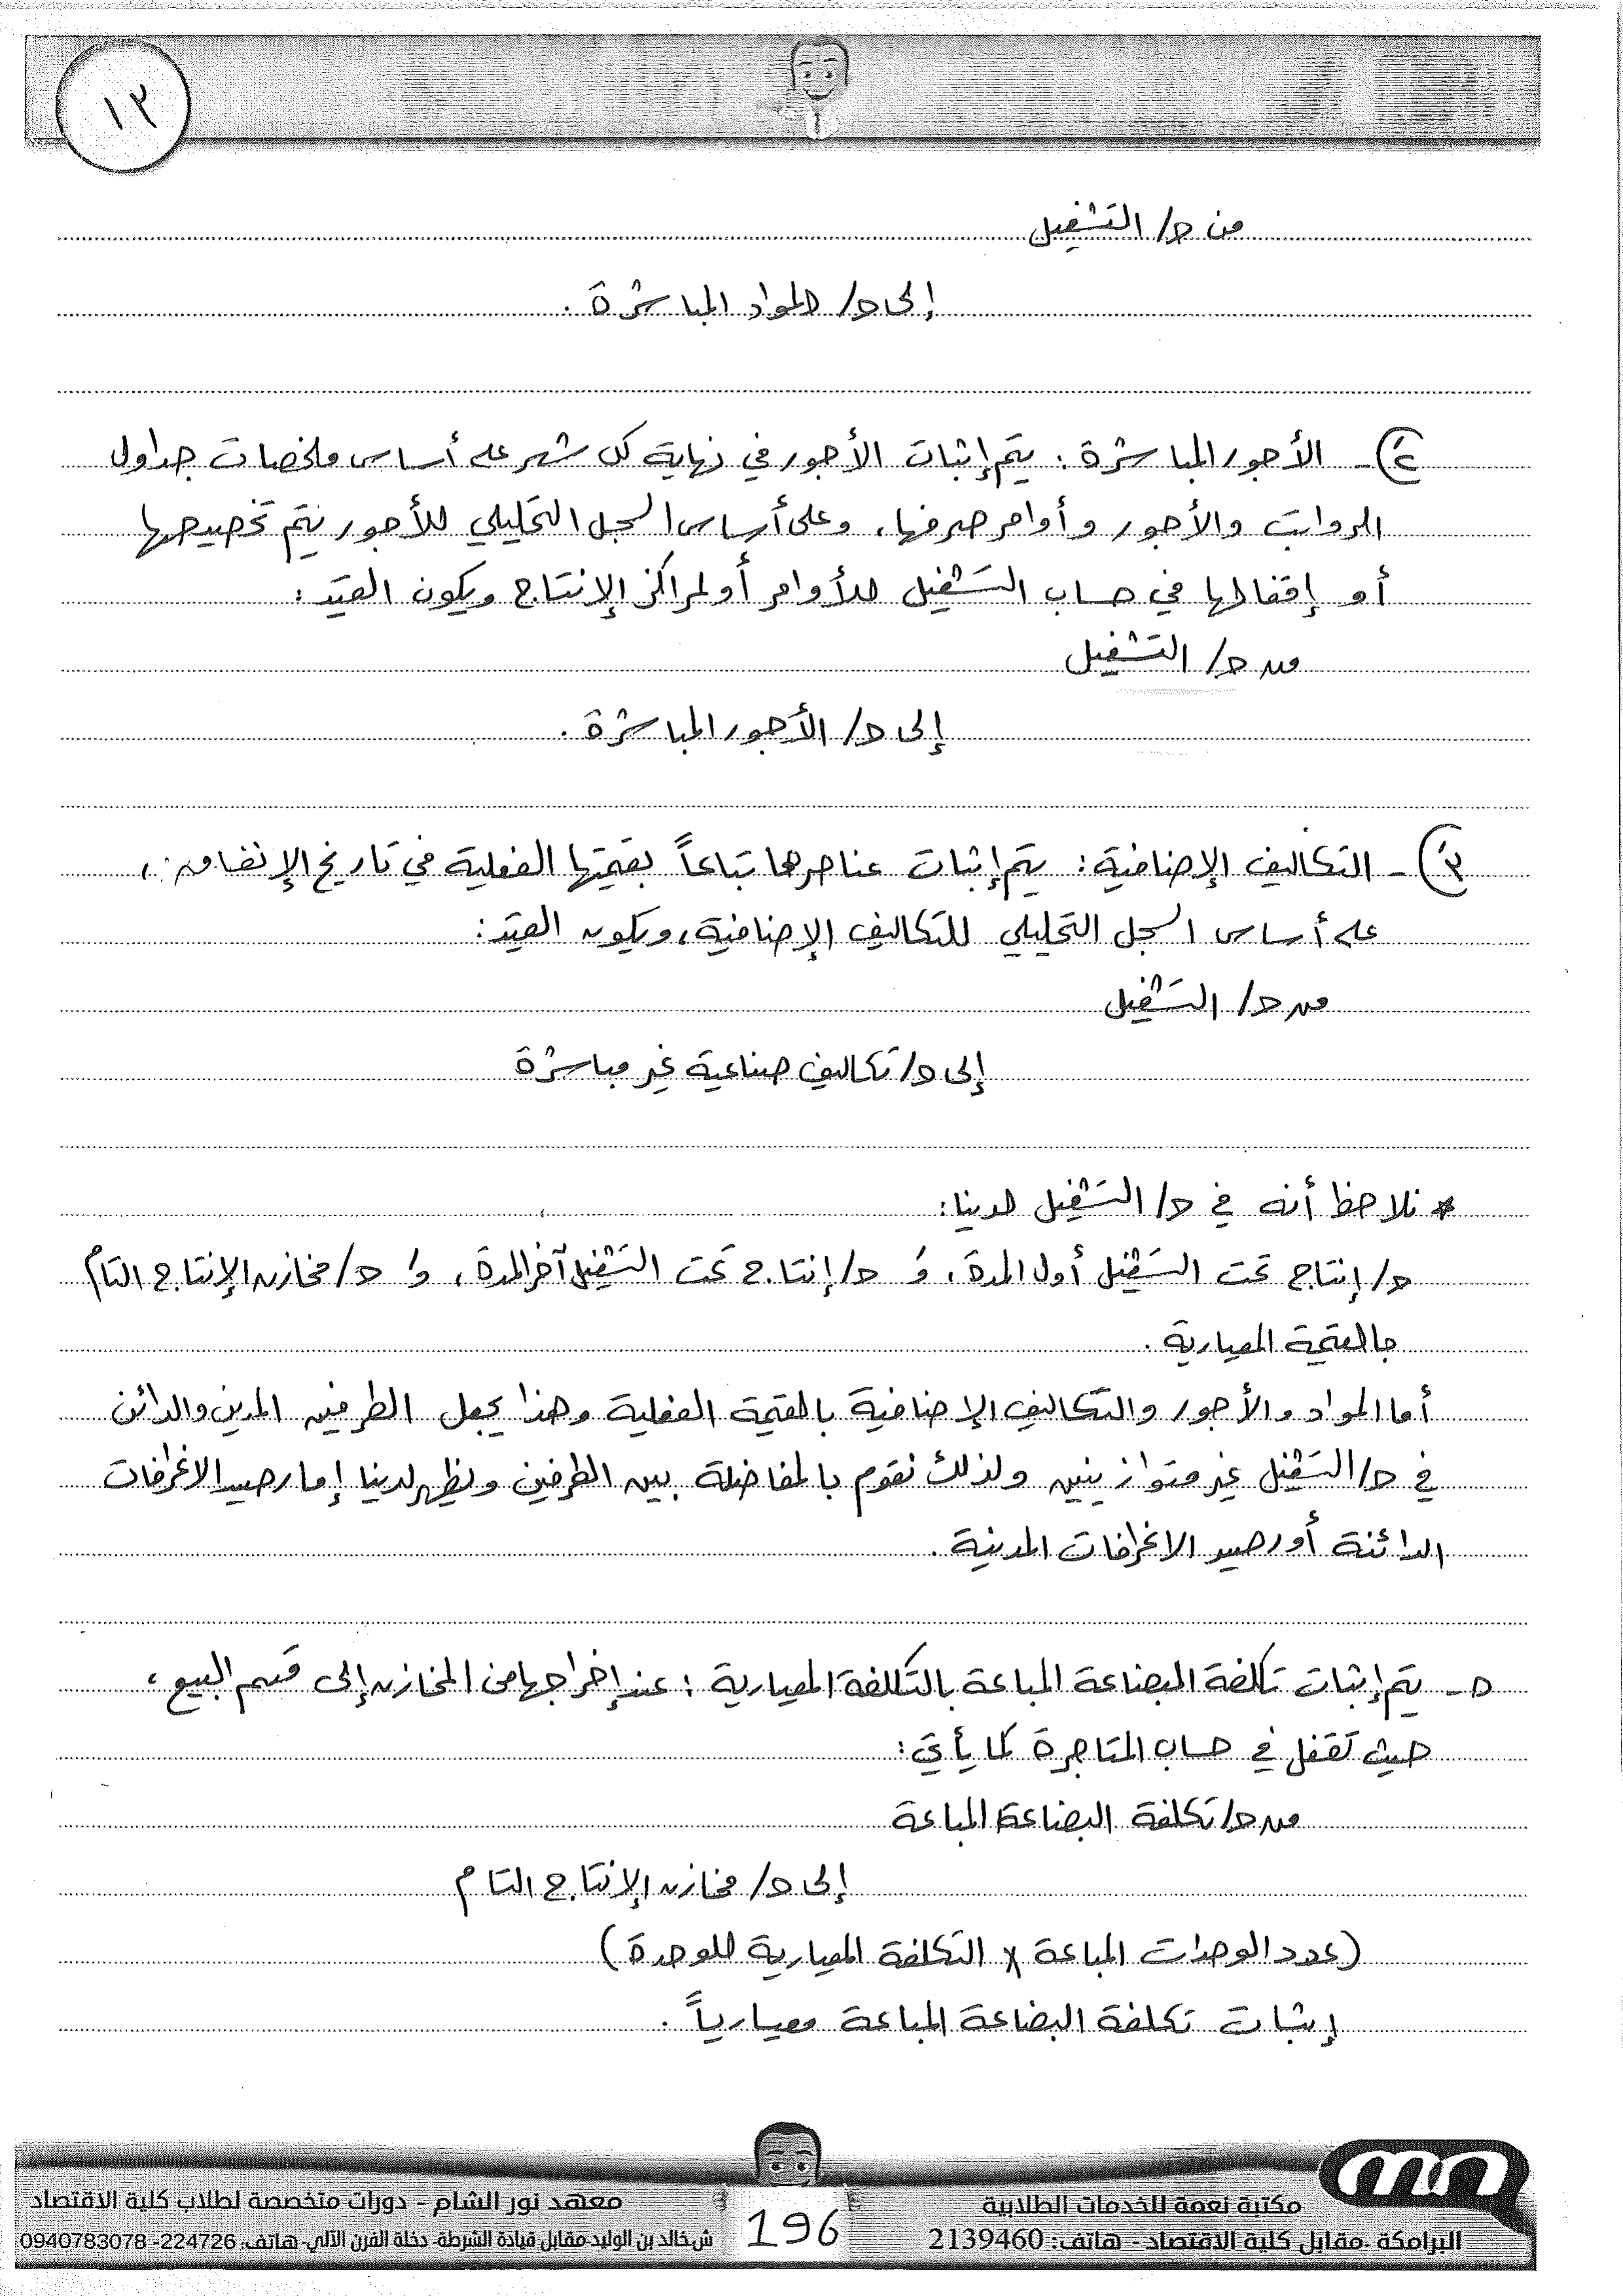 ١٣
من ح/ التشغيل
إلى ح/ المواد المباشرة .
٢)- الأجور المباشرة : يتم إثبات الأجور في نهاية كل شهر على أساس ملخصات جداول
الرواتب والأجور و أوامر صرفها، وعلى أساس السجل التحليلي للأجور يتم تخصيصها
أو إقفالها في حساب التشغيل للأوامر أو لمراكز الإنتاج ويكون القيد :
من ح/ التشغيل
إلى ح/ الأجور المباشرة .
٣)- التكاليف الإضافية : يتم إثبات عناصرها تباعاً بقيمتها الفعلية في تاريخ الإنفاق ،
على أساس السجل التحليلي للتكاليف الإضافية، ويكون القيد :
من ح/ التشغيل
إلى ح/ تكاليف صناعية غير مباشرة
* نلاحظ أنه في ح/ التشغيل لدينا :
ح/ إنتاج تحت التشغيل أول المدة ، و ح/ إنتاج تحت التشغيل آخر المدة ، و ح/ مخازن الإنتاج التام
بالقيمة المعيارية .
أما المواد والأجور والتكاليف الإضافية بالقيمة الفعلية وهذا يجعل الطرفين المدين والدائن
في ح/ التشغيل غير متوازنين ولذلك نقوم بالمفاضلة بين الطرفين ويظهر لدينا إما رصيد الانحرافات
الدائنة أو رصيد الانحرافات المدينة .
٥- يتم إثبات تكلفة البضاعة المباعة بالتكلفة المعيارية : عند إخراجها من المخازن إلى قسم البيع ،
حيث تقفل في حساب المتاجرة كما يأتي :
من ح/ تكلفة البضاعة المباعة
إلى ح/ مخازن الإنتاج التام
(عدد الوحدات المباعة x التكلفة المعيارية للوحدة)
إثبات تكلفة البضاعة المباعة معيارياً .
مكتبة نعمة للخدمات الطلابية
البرامكة -مقابل كلية الاقتصاد - هاتف: 2139460
196
معهد نور الشام - دورات متخصصة لطلاب كلية الاقتصاد
ش خالد بن الوليد-مقابل قيادة الشرطة- دخلة الفرن الآلي- هاتف: 224726- 0940783078